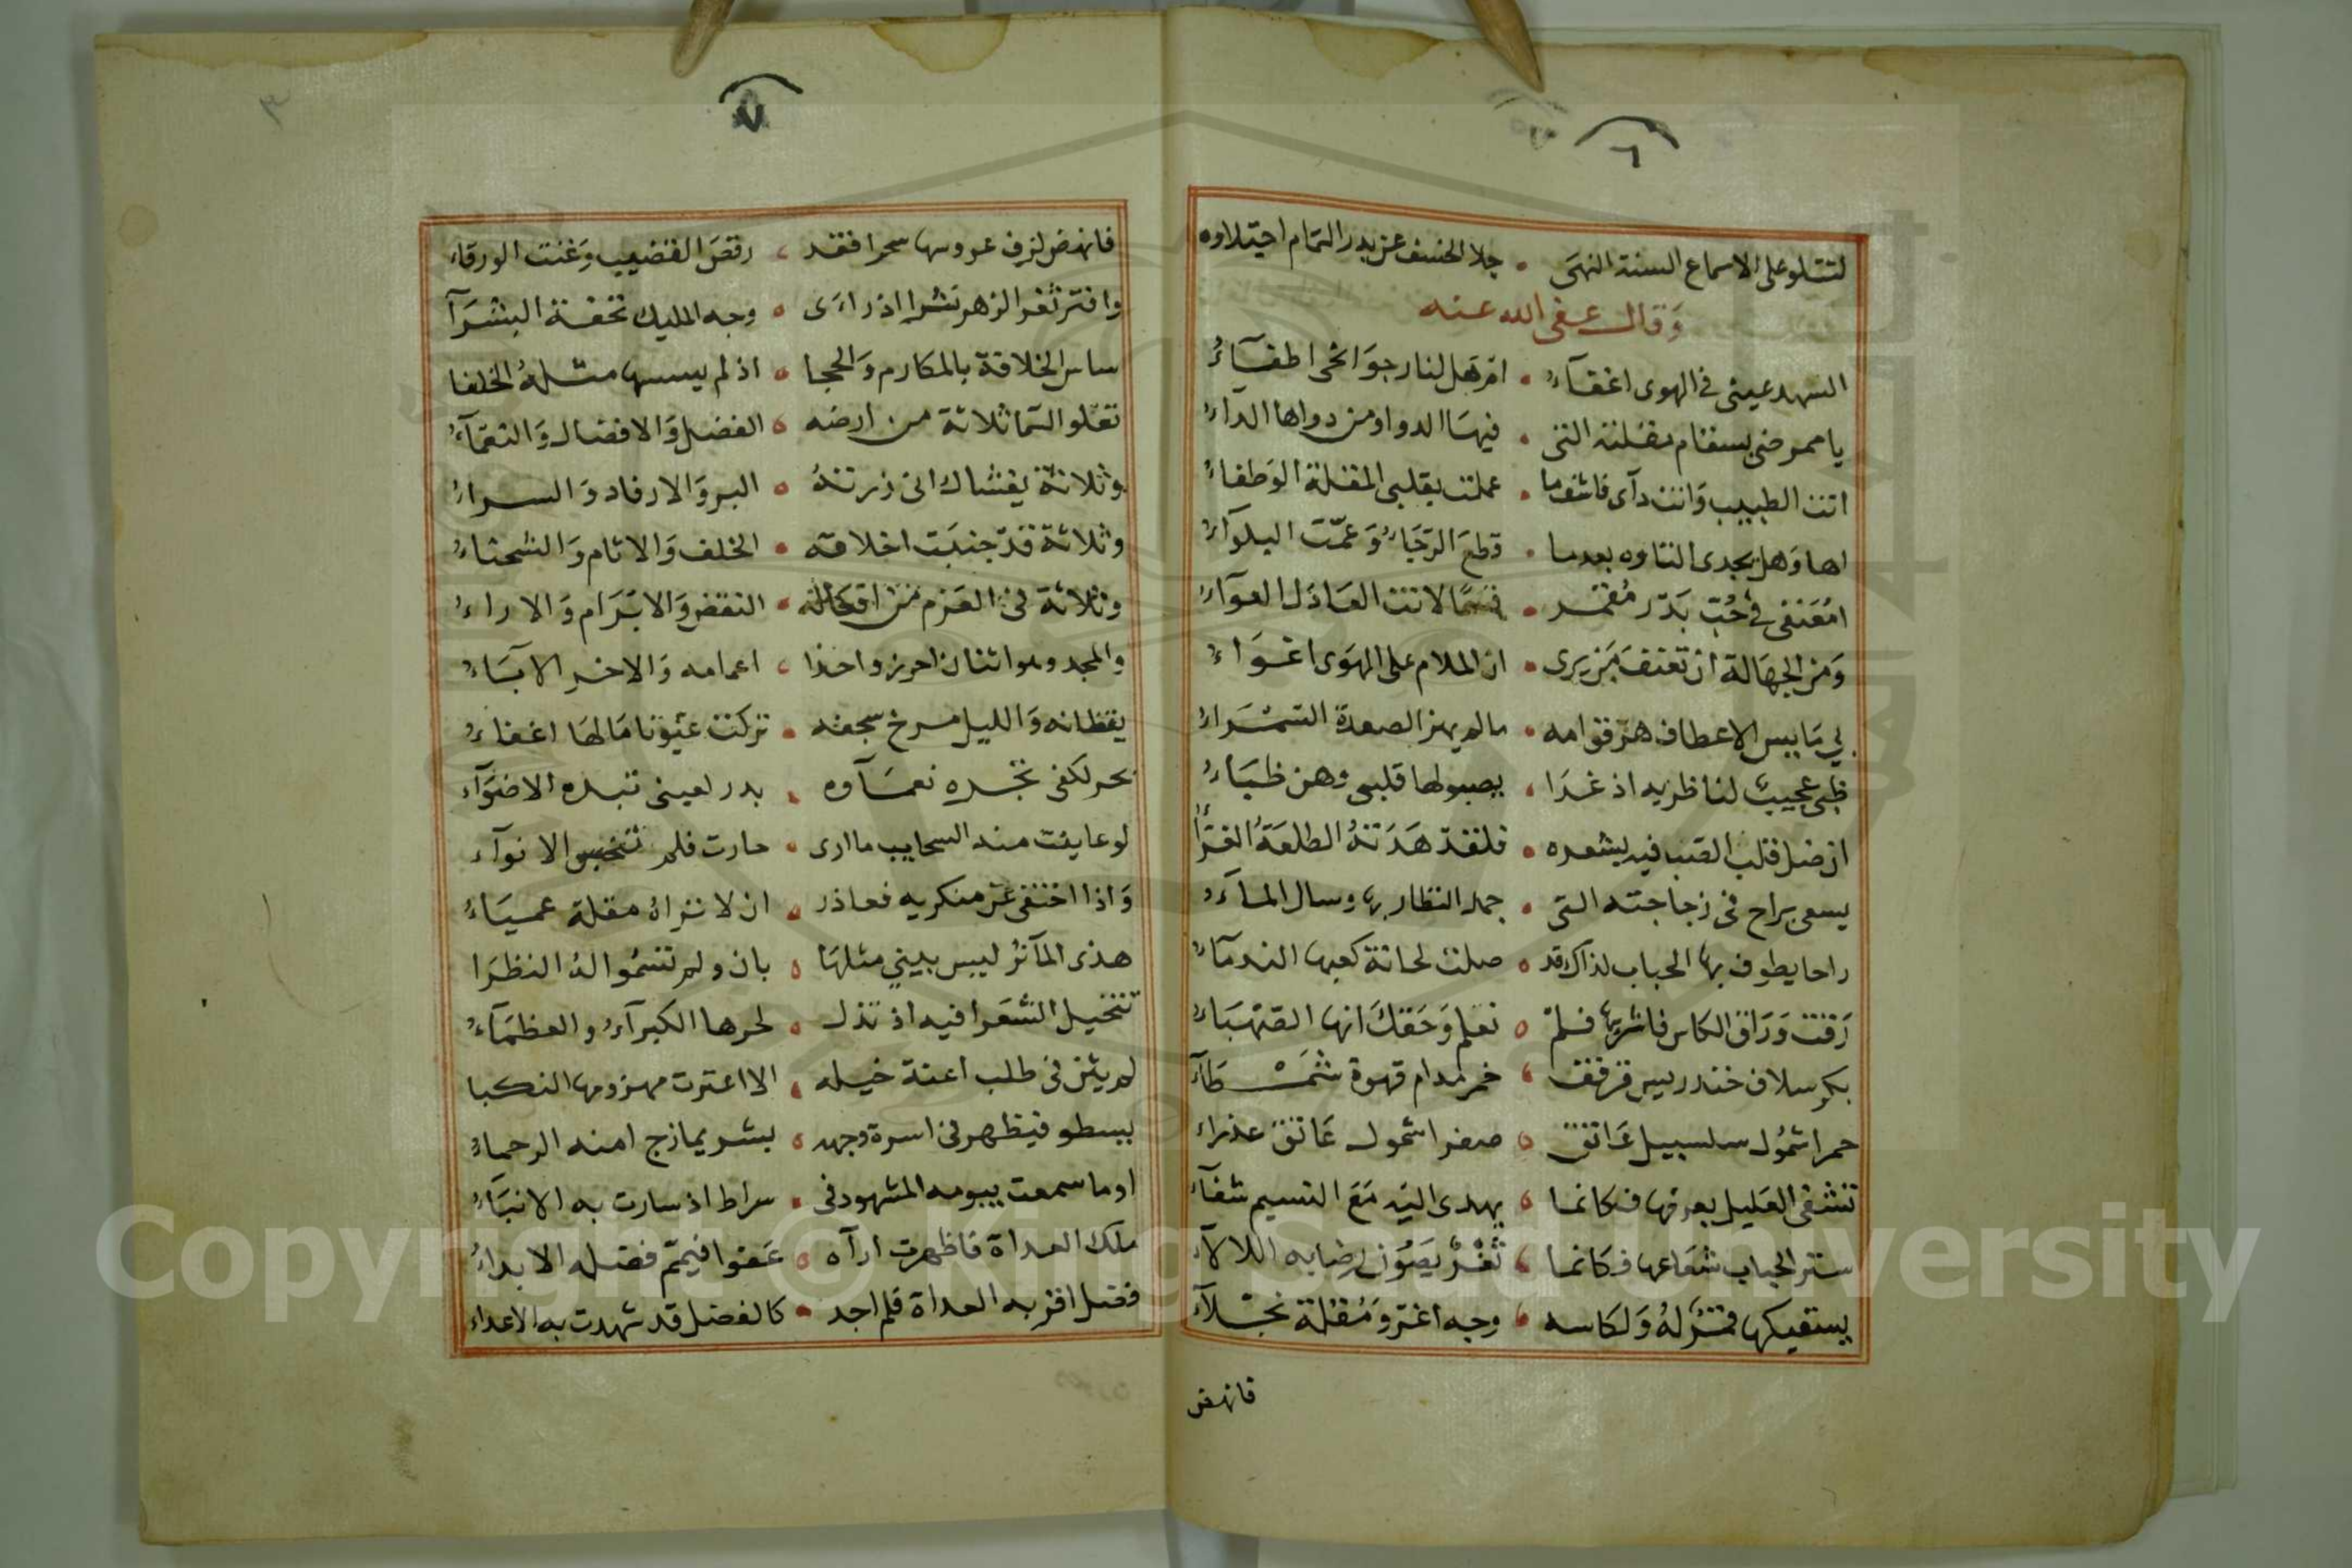 ٦
لتتلو على الاسماع السنة النهى • جلا الخسف عن بدر التمام اجتلاوه
وقال عفى الله عنه
السهد عيني في الهوى اغفآء • ام هل لنار جوانحي اطفآء
يا ممرضي بسقام مقلته التي • فيها الدوا ومن دواها الدآء
انت الطبيب وانت دآى فاشفها • عملت بقلبي المقلة الوطفاء
اها وهل يجدى التاوه بعدما • قطع الرجاء وعمت البلوآء
امعنفي في حب بدر مقمر • قسما لانت العاذل العوآء
ومن الجهالة ان تعنف من يرى • ان الملام على الهوى اغوآء
بي مايس الاعطاف هز قوامه • مالم يهز الصعدة السمراء
ظبي عجيب لناظريه اذ غدا • يصبو لها قلبي وهن ظباء
ان ضل قلب الصب فيه بشعره • فلقد هدته الطلعة الغرآ
يسعى براح في زجاجته التي • جمد النظار بها وسال المآء
راحا يطوف بها الحباب لذاك قد • صلت لحانة كعبها الندمآء
رقت وراق الكاس فاشربها فلم • نعلم وحقك انها الصهباء
بكر سلاف خندريس قرقف • خمر مدام قهوة شمطآء
حمرا شمول سلسبيل عاتق • صفرا شمول عاتق عذراء
تشفى العليل بعرفها فكانما • يهدى اليه مع النسيم شفآء
ستر الحباب شعاعها فكانما • ثغر يصون رضابه اللالآء
يسقيكها قمر له ولكاسه • وجه اغر ومقلة نجلآء
فانهض
٧
فانهض لزف عروسها سحرا فقد • رقص القضيب وغنت الورقاء
وافتر ثغر الزهر نشرا اذ راءى • وجه المليك تحفة البشرآ
ساس الخلافة بالمكارم والحجا • اذ لم يسسها مثله الخلفا
تعلو السما ثلاثة من ارضه • الفضل والافضال والنعمآء
وثلاثة يغشاك انى زرته • البر والارفاد والسراء
وثلاثة قد جنبت اخلاقه • الخلف والاثام والشحناء
وثلاثة في العزم من افعاله • النقض والابرام والاراء
والمجد وهو اثنان احرز واحذا • اعمامه والاخر الآباء
يقظانه والليل مرخ سجفه • تركت عيونا مالها اغفاء
بحر لكفى نجده نعمآوه • بدر لعيني تبده الاضوآء
لو عاينت منه السحايب ما ارى • حارت فلم تتبجس الانوآء
واذا اختفى عن منكريه فعاذر • ان لا تراه مقلة عمياء
هذى المآثر ليس يبني مثلها • بان ولم تسموا له النظرا
تتخيل الشعرا فيه اذ تذل • لحرها الكبرآء والعظمآء
لم يثن في طلب اعنة خيله • الا اعترت مهزومها النكبا
يسطو فيظهر في اسرة وجهه • بشر يمازج امنه الرحماء
اوما سمعت بيومه المشهود في • سراط اذ سارت به الانبآء
ملك العداة فاظهرت ارآه • عفوا فيمم فضله الابداء
فضل اقر به العداة فلم اجد • كالفضل قد شهدت به الاعداء
Copyright © King Saud University